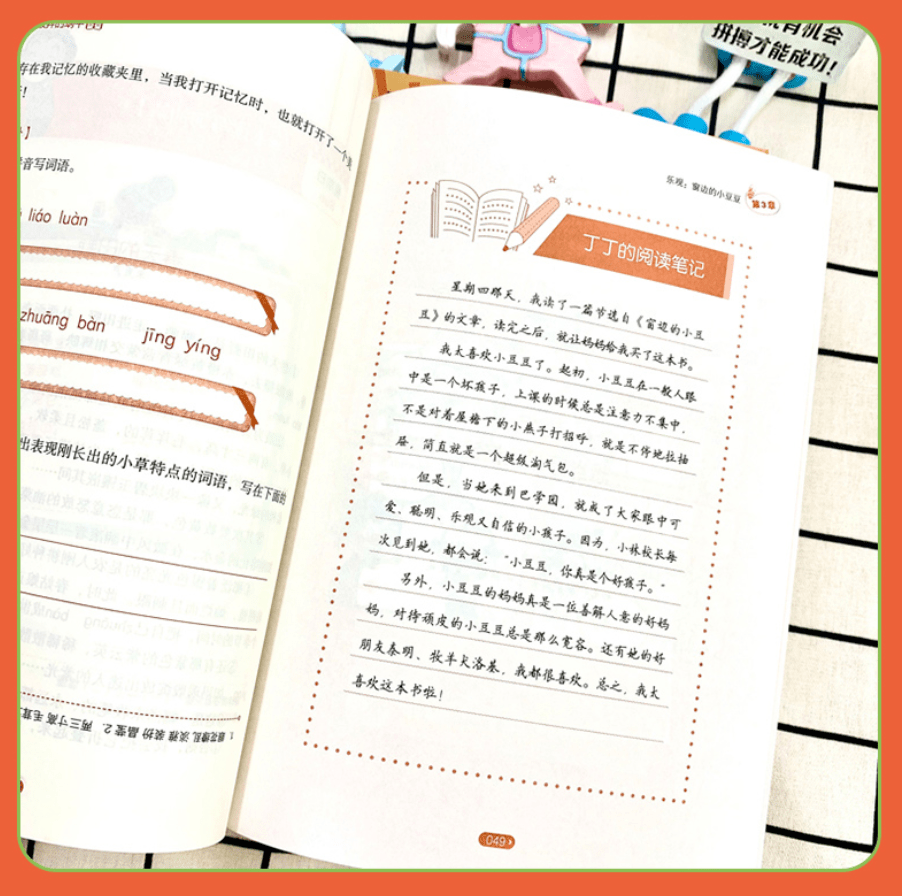 就有机会
拼搏才能成功!
存在我记忆的收藏夹里，当我打开记忆时，也就打开了一个
音写词语。
liáo luàn
zhuāng bàn jīng yíng
出表现刚长出的小草特点的词语，写在下面的
1. 眼花缭乱 淡雅 装扮 晶莹 2. 两三寸高 毛茸
乐观：窗边的小豆豆
第3章
丁丁的阅读笔记
星期四那天，我读了一篇节选自《窗边的小豆
豆》的文章，读完之后，就让妈妈给我买了这本书。
我太喜欢小豆豆了。起初，小豆豆在一般人眼
中是一个坏孩子，上课的时候总是注意力不集中，
不是对着屋檐下的小燕子打招呼，就是不停地拉抽
屉，简直就是一个超级淘气包。
但是，当她来到巴学园，就成了大家眼中可
爱、聪明、乐观又自信的小孩子。因为，小林校长每
次见到她，都会说：“小豆豆，你真是个好孩子。”
另外，小豆豆的妈妈真是一位善解人意的好妈
妈，对待顽皮的小豆豆总是那么宽容。还有她的好
朋友泰明、牧羊犬洛基，我都很喜欢。总之，我太
喜欢这本书啦！
049